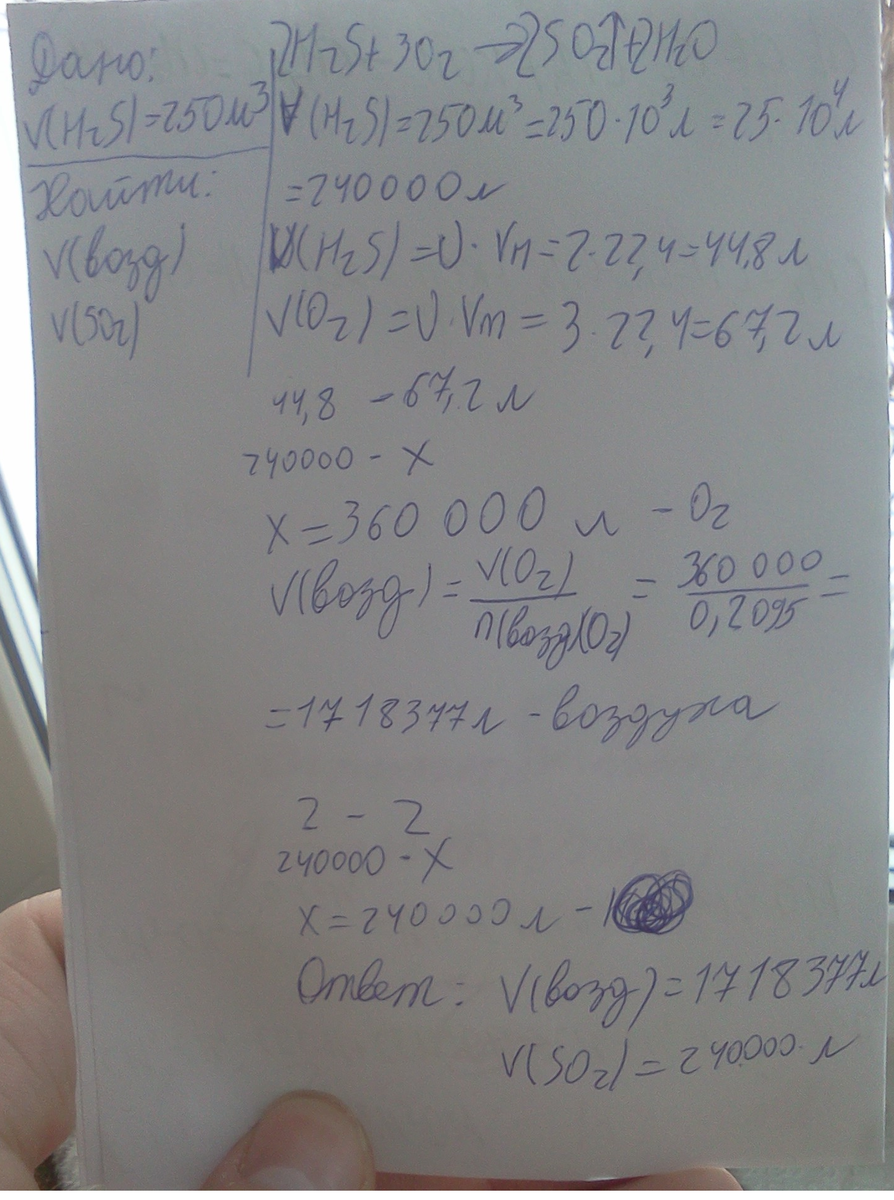 Дано:
V(H₂S)=250м³
Найти:
V(возд)
V(SO₂)
2H₂S+3O₂→2SO₂↑+2H₂O
V(H₂S)=250м³=250·10³л=25·10⁴л
=240000л
V(H₂S)=υ·Vm=2·22,4=44,8л
V(O₂)=υ·Vm=3·22,4=67,2л
44,8-67,2л
240000-x
x=360 000 л -O₂
V(возд)=V(O₂)/п(возд)(O₂)=360 000/0,2095=
=1718377л-воздуха
2-2
240000-x
x=240000л-
Ответ: V(возд)=1718377л
V(SO₂)=240000 л